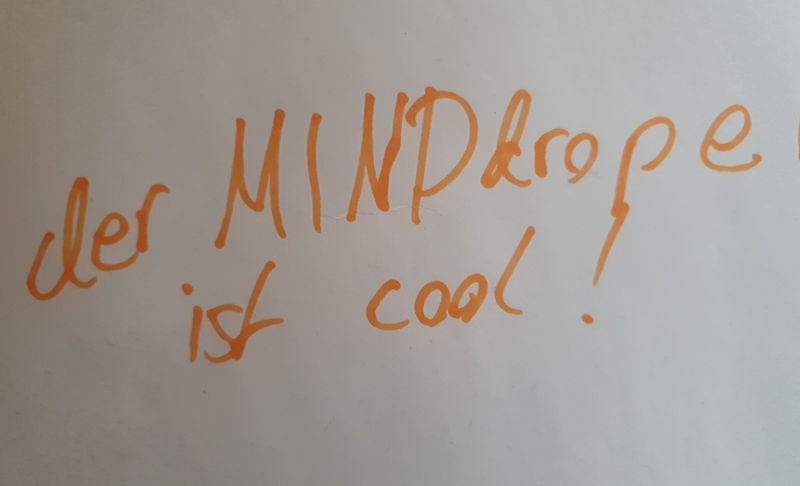 der MINDdrope
ist cool!